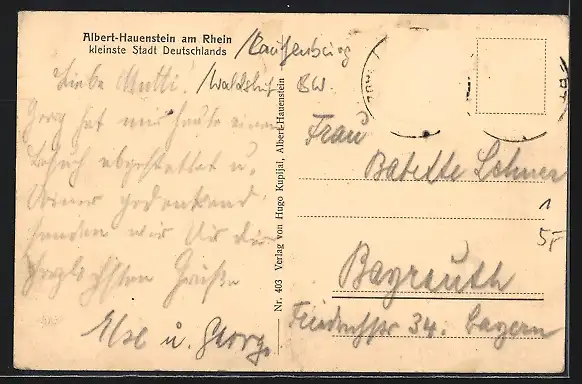 Albert-Hauenstein am Rhein
kleinste Stadt Deutschlands
/Laufenburg
/Waldshut BW.
Liebe Mutti!
Georg hat mir heute einen
Besuch abgestattet u.
Deiner gedenkend
senden wir Dir die
herzlichsten Grüße
Else u. Georg.
Nr. 403 Verlag von Hugo Kupijai, Albert-Hauenstein
Frau
Babette
Bayreuth
Friedrichstr 34. Bayern
1